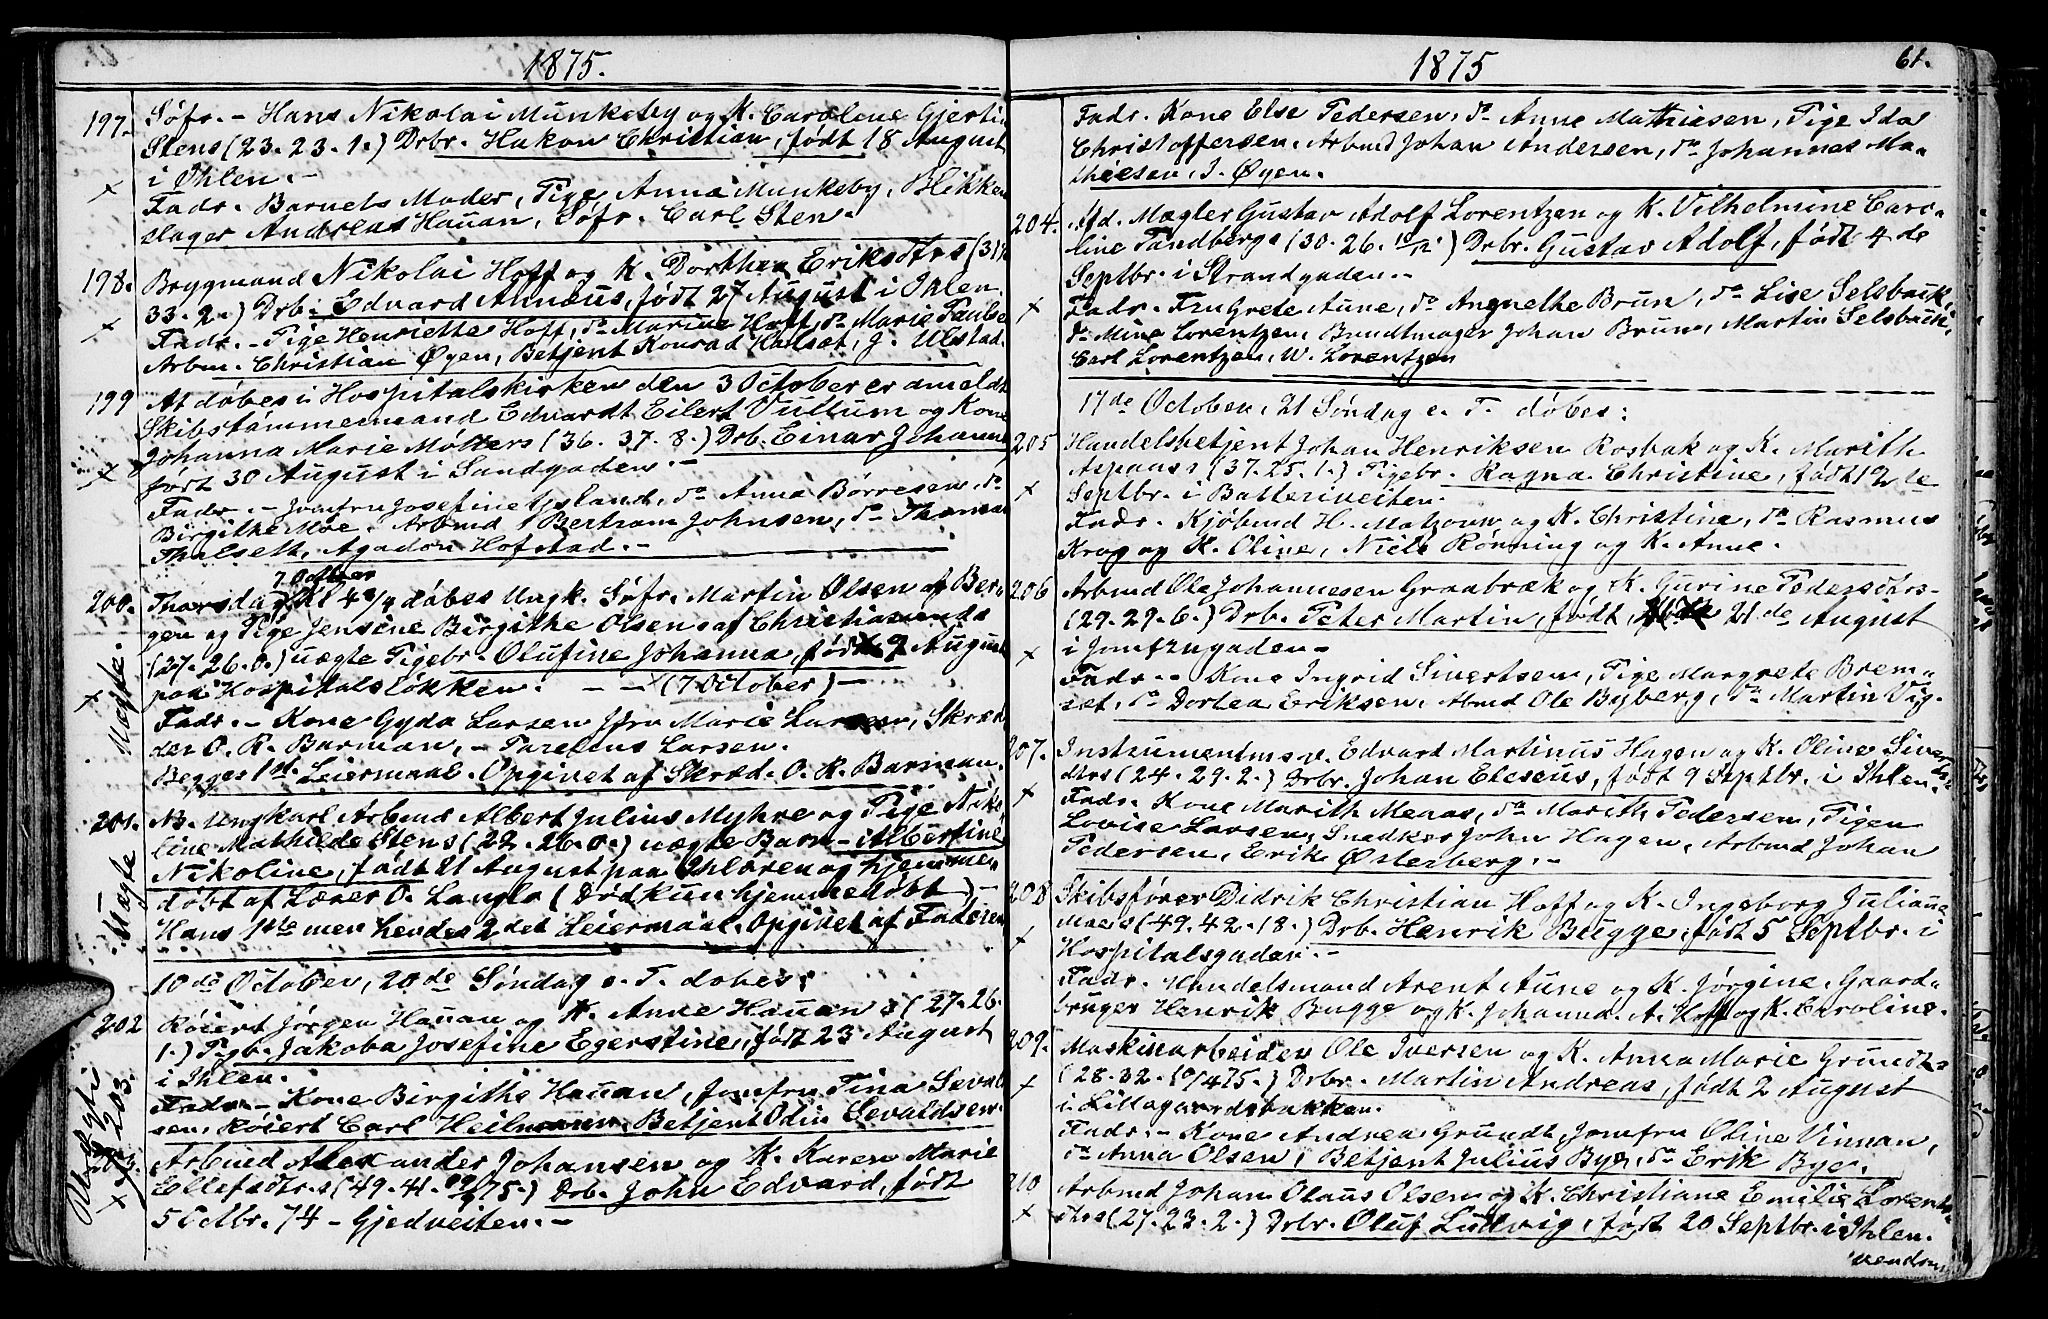 1875.
197. Søfr. - Hans Nikolai Munkeby og K. Caroline Gjertine
Stens (23. 23. 1.) Drbr. Hakon Christian, født 18 August
i Ihlen. -
Fadr. Barnets Moder, Pige Anna Munkeby, Blikken-
slager Andreas Hauan, Søfr. Carl Sten.
198. Brygmand Nikolai Hoff og K. Dorthea Eriksdtrs (31.
33. 2.) Drb. Edvard Annæus, født 27 August i Ihlen.
Fadr. - Pige Henriette Hoff, do Marine Hoff, do Marie
Arbm. Christian Øyen, Betjent Konrad Hadsæt, J. Ulstad.
199 At døbes i Hospitalskirken den 3 October er anmeldt
Skibstømmermand Edvardt Eilert Vullum og Kone
Johanna Marie Molters (36. 37. 8.) Drb. Einar Johann
født 30 August i Sandgaden. -
Fadr. - Jomfru Josefine Ysland, do Anna Børresen, do
Birgithe Moe. Arbmd Bertram Johnsen, do Thomas
Thalseth, Agadon Hofstad. -
7 October
200. Thorsdag Kl 4 3/4 døbes Ungk. Søfr. Martin Olsen af Ber-
gen og Pige Jensine Birgithe Olsen af Christiansunds
(27. 26. 0.) uægte Pigebr. Olufine Johanna, født 9 August
paa Hospitalsløkken. - - (7 October) -
Uægte.
Fadr. - Kone Gyda Larsen Jfru Marie Larsen, Skræd-
der O. R. Barman, - Larsen.
Begges 1st. Leiermaal. Opgivet af Skræd. O. R. Barman.
201. N. Ungkarl Arbmd Albert Julius Myhre og Pige Niko-
line Mathilde Stens (22. 26. 0.) uægte Barn - Albertine
Nikoline, født 21 August paa Ihløren og hjemme-
døbt af Lærer O. Langlo (Død kun hjemmedøbt) -
Hans 1ste men hendes 2det Leiermaal. Opgivet af Faderen
Uægte
10de October, 20de Søndag e. T. døbes:
202 Røiert Jørgen Hauan og K. Anne Hauan s (27. 26.
1.) Pigb. Jakoba Josefine Egerstine, født 23 August
i Ihlen.
Fadr. - Kone Birgithe Hauan, Jomfru Tina Seval-
sen, Røiert Carl Heilmann, Betjent Odin Sevaldsen.
203. Arbmd Alexander Johansen og K. Karen Marie
Ellefsdtrs (49. 41. 75.) Drb. John Edvard, født
5 Octbr. 74 - Gjedveiten. -
1875
61.
Fadr. Kone Else Pedersen, do Anne Mathiesen, Pige Ida
Christoffersen. Arbmd Johan Andersen, do Johannes Ma-
thiesen, J. Øyen.
204. Afd. Mægler Gustav Adolf Lorentzen og K. Vilhelmine Caro-
line Tandbergs (30. 26. ) Drbr. Gustav Adolf, født 4de
Septbr. i Strandgaden. -
Fadr. Fru Grete Aune, do Angnethe Brun, do Lise Selsbak,
do Mine Lorentzen, Bundtmager Johan Brun, Martin Selsbak,
Carl Lorentzen, W. Lorentzen
17de October, 21 Søndag e. T. døbes:
205 Handelsbetjent Johan Henriksen Rosbak og K. Marith
Aspaas s (37. 25. 1.) Pigebr. Ragna Christine, født 12te
Septbr. i Batteriveiten.
Fadr. Kjøbmd H. Matzow og K. Christine, do Rasmus
Krog og K. Oline, Niels Rønning og K. Anne.
206 Arbmd Ole Johannesen Graabræk og K. Gurine Pedersdtrs -
(29. 29. 6.) Drb. Peter Martin, født 21de August
i Jomfrugaden -
Fadr. - Kone Ingrid Sivertsen, Pige Margrete Brem-
set, do Dortea Eriksen, Arbmd Ole Byberg, do Martin Vig-
207. Instrumentm. Edvard Martinus Hagen og K. Oline Siverts-
dtrs (24. 29. 2.) Drbr. Johan Eleseus, født 9 Septbr. i Ihlen.
Fadr. Kone Marith Menas, do Marith Pedersen, Pigen
Lovise Larsen, Snedker John Hagen, Arbmd Johan
Pedersen, Erik Østerberg. -
208 Skibsfører Didrik Christian Hoff og K. Ingeborg Julianne
Moes (49. 42. 18.) Drb. Henrik Bugge, født 5 Septbr. i
Hospitalsgaden. -
Fadr. Handelsmand Arent Aune og K. Jørgine, Gaard-
bruger Henrik Bugge og K. Johanna. A. Hoff og K. Caroline.
209. Maskinarbeider Ole Iversen og K. Anna Marie Grundt-
(28. 32. 10/4 75.) Drbr. Martin Andreas, født 2 August
i Lillegaardsbakken.
Fadr. - Kone Andrea Grundt, Jomfru Oline Vinnan,
do Anna Olsen, Betjent Julius Bye, do Erik Bye.
210 Arbmd Johan Olaus Olsen og K. Christiane Emilie Lorents-
dtrs (27. 23. 2.) Drbr. Oluf Ludvig, født 20 Septbr. i Ihlen.